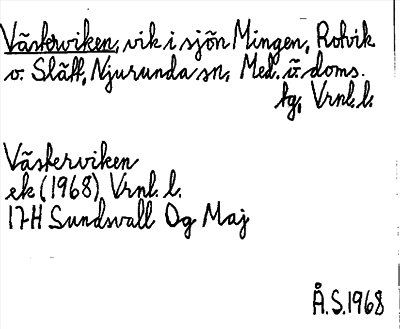 Västerviken, vik i sjön Mingen, Rotvik
o. Slätt, Njurunda sn, Med. ö. doms.
tg, Vrnl. l.
Västerviken
ek (1968) Vrnl. l.
17H Sundsvall Og Maj
Å.S.1968